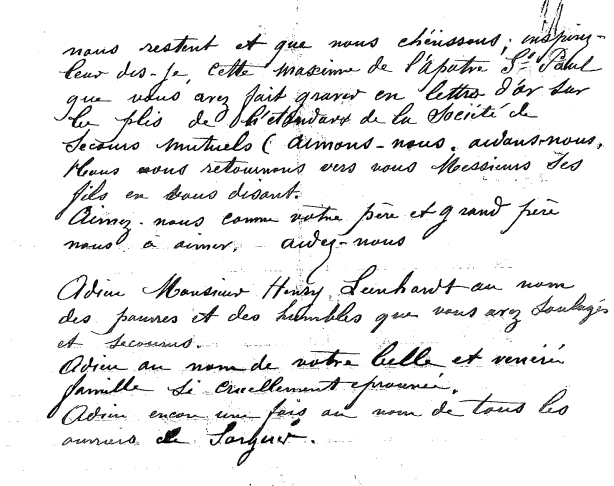 nous restent et que nous chérissons, inspirez-
leur dis-je, cette maxime de l'Apotre St Paul
que vous avez fait graver en lettres d'or sur
les plis de l'étendard de la Société de
Secours mutuels (aimons-nous, aidons-nous,
Nous nous retournons vers vous Messieurs Ses
fils en vous disant.
Aimez-nous comme votre père et grand père
nous a aimer. aidez-nous
Adieu Monsieur Henry Leenhardt au nom
des pauvres et des humbles que vous avez soulagés
et secourus.
Adieu au nom de votre belle et vénérée
famille si cruellement eprouvée.
Adieu encore une fois au nom de tous les
ouvriers de Sorgues.